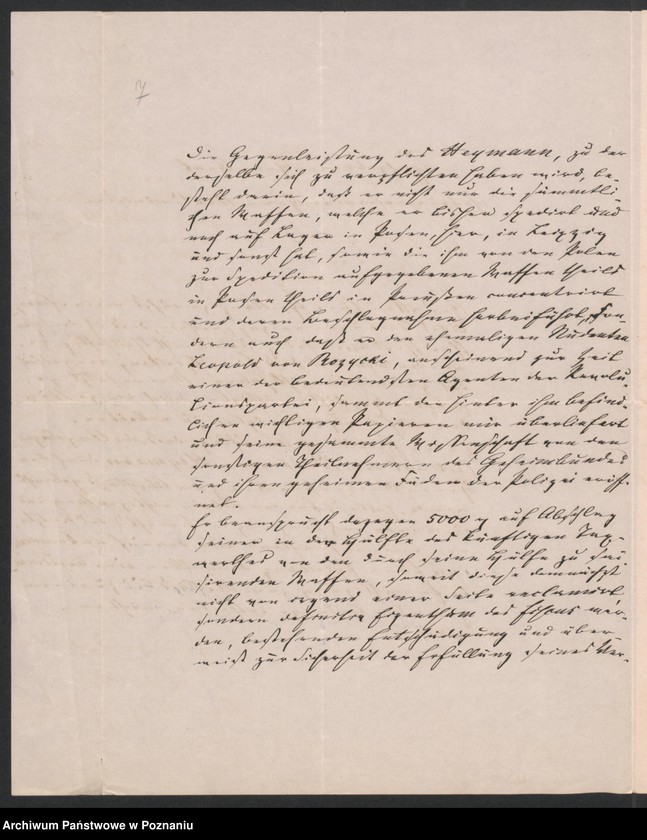 7
Die Gegenleistung des Heymann, zu der
derselbe sich zu verpflichten haben wird, be-
steht darin, daß er nicht nur die sämmtli-
chen Waffen, welche er bisher spedirt und
noch auf Lager in Posen, hier, in Leipzig
und sonst hat, sowie die ihm von den Polen
zur Spedition aufgegebenen Waffen theils
in Posen theils in Preußen concentrirt
und deren Beschlagnahme herbeiführt, son-
dern auch daß er den ehemaligen Studenten
Leopold von Rozycki, anscheinend zur Zeit
einer der bedeutendsten Agenten der Revolu-
tionspartei, sammt den hinter ihm befind-
lichen wichtigen Papieren mir überliefert
und seine gesammte Wissenschaft von den
sonstigen Theilnehmern des Geheimbundes
und ihren geheimen Fäden der Polizei eröff-
net.
Er beansprucht dagegen 5000 auf Abschlag
seiner in der Hälfte des künftigen Tax-
werthes von den durch seine Hülfe zu sai-
sirenden Waffen, soweit diese demnächst
nicht von irgend einer Seite reclamirt
sondern definitiv Eigenthum des Fiskus wer-
den, bestehenden Entschädigung und über-
weist zur Sicherheit der Erfüllung seines Ver-
Archiwum Państwowe w Poznaniu